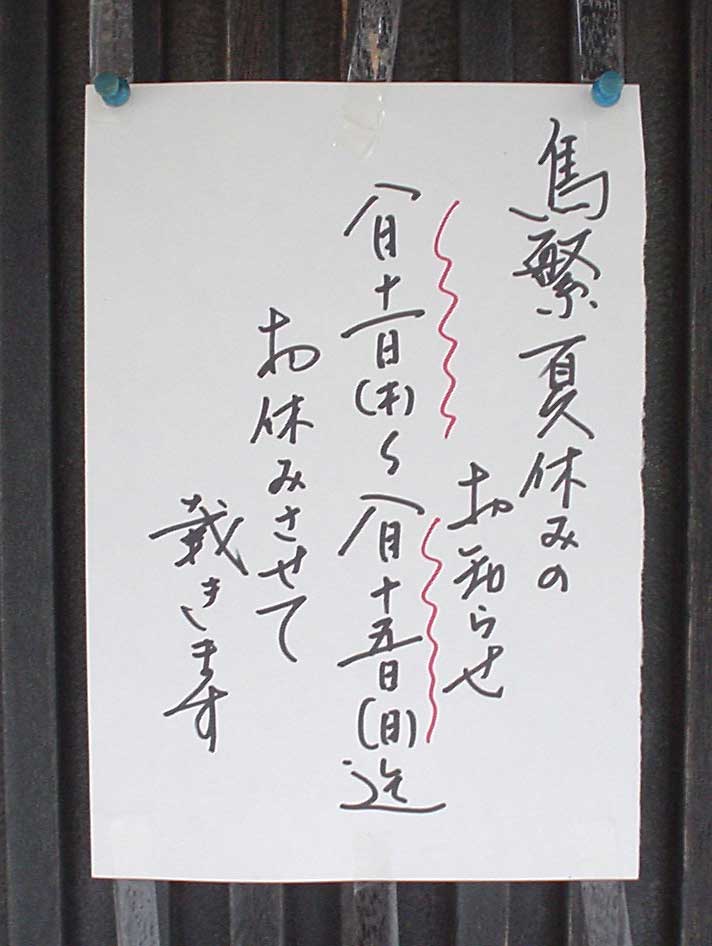 鳥繁夏休みの
お知らせ
八月十二日(木)〜八月十五日(日)迄
お休みさせて
戴きます